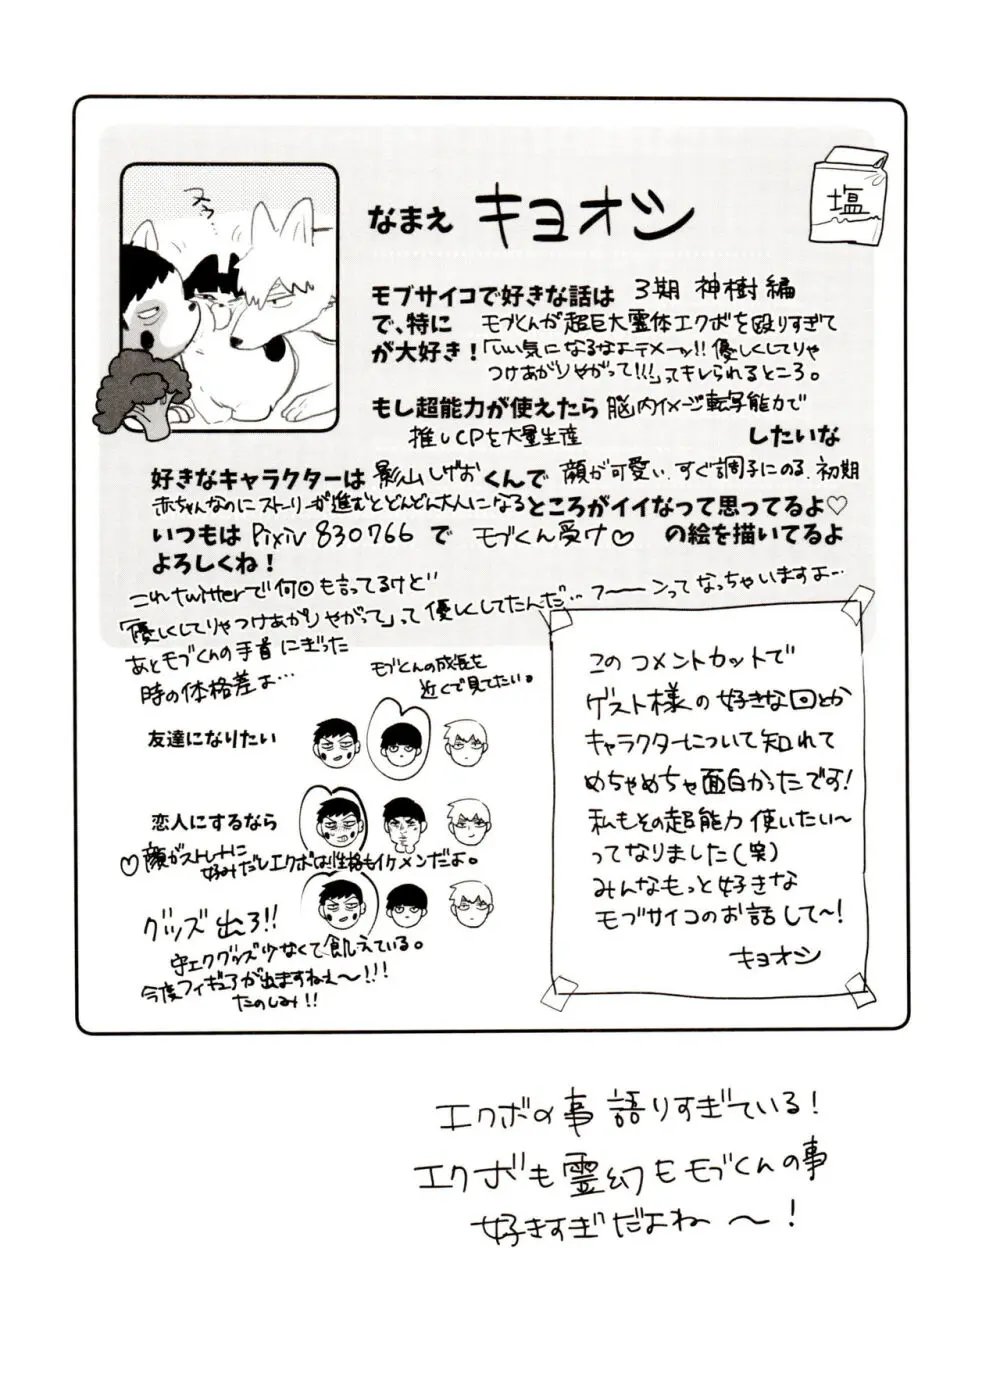 スゥ…
塩
なまえ キヨオシ
モブサイコで好きな話は 3期 神樹編
で、特に モブくんが超巨大霊体エクボを殴りすぎて
が大好き!「いい気になるなよテメーッ!!優しくしてりゃ
つけあがりやがって!!!」ってキレられるところ。
もし超能力が使えたら 脳内イメージ転写能力で
推しCPを大量生産 したいな
好きなキャラクターは 影山しげお くんで 顔が可愛い、すぐ調子にのる、初期
赤ちゃんなのにストーリーが進むとどんどん大人になる ところがイイなって思ってるよ♡
いつもは Pixiv 830766 で モブくん受け♡ の絵を描いてるよ
よろしくね!
これtwitterで何回も言ってるけど
「優しくしてりゃつけあがりやがって」って優しくしてたんだ…フーーンってなっちゃいますよ…
あとモブくんの手首にぎった
時の体格差よ…
モブくんの成長を
近くで見てたい。
友達になりたい
恋人にするなら
♡顔がストレートに
好みだしエクボは性格もイケメンだよ。
グッズ出ろ!!
守エクグッズ少なくて飢えている。
今度フィギュアが出ますねぇ〜!!!
たのしみ!!
このコメントカットで
ゲスト様の好きな回とか
キャラクターについて知れて
めちゃめちゃ面白かったです!
私もその超能力使いたい〜
ってなりました(笑)
みんなもっと好きな
モブサイコのお話して〜!
キヨオシ
エクボの事語りすぎている!
エクボも霊幻もモブくんの事
好きすぎだよね〜!